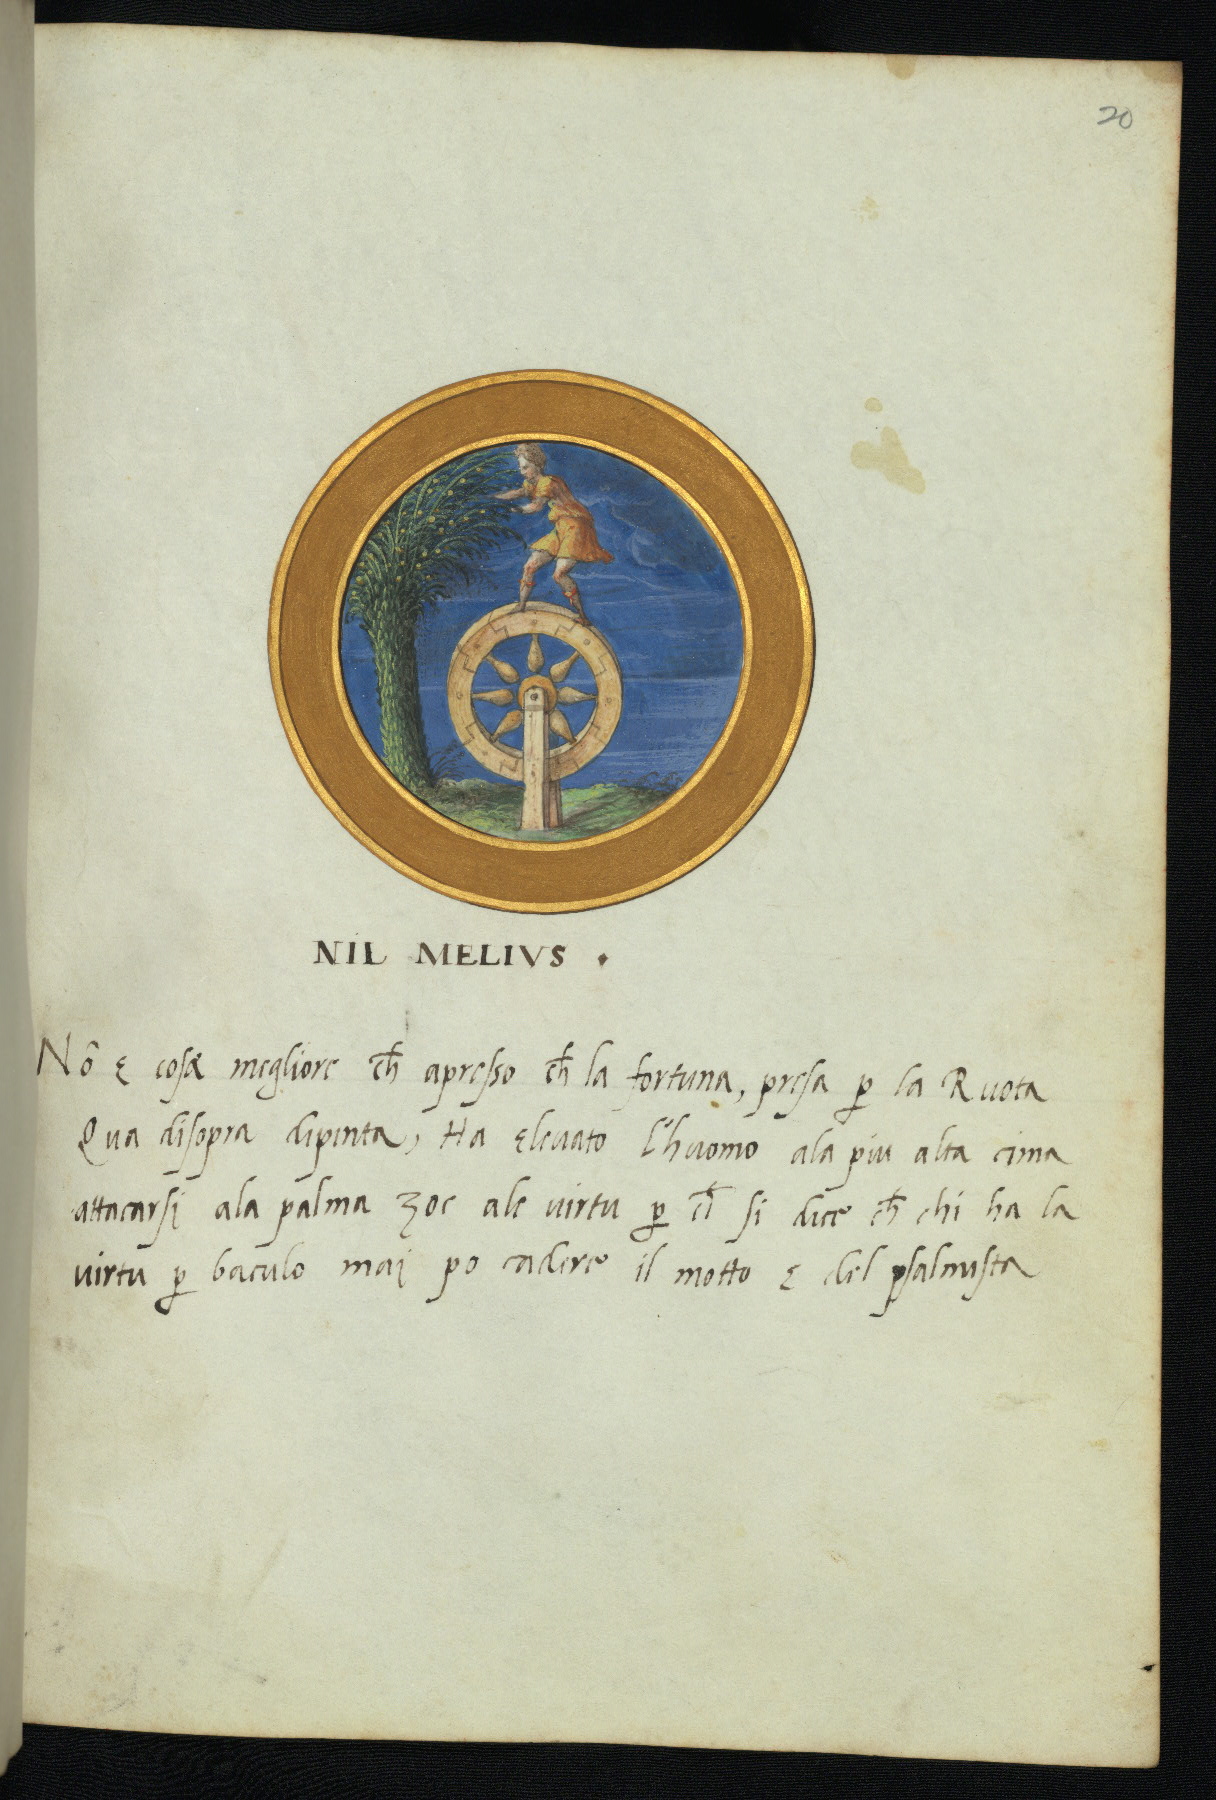 20
NIL MELIVS .
Nō ε cosa megliore ch̄ apresso ch̄ la fortuna, presa ꝑ la Ruota
Qua disopra dipinta, Ha εlevato l'huomo ala piu alta cima
attacarsi ala palma zoe ale virtu ꝑ si dice ch̄ chi ha la
virtu ꝑ baculo maj po cadere il motto ε del psalmista